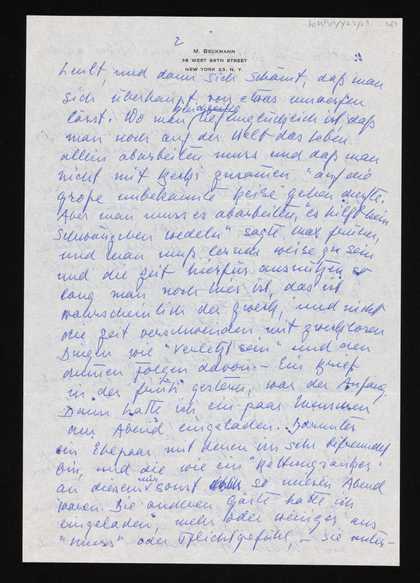 2
M. BECKMANN
38 WEST 69TH STREET
NEW YORK 23, N. Y.
heult, und dann sich schämt, daß man
sich überhaupt von etwas umwerfen
lässt. Wo man unglücklich ist daß
man noch auf der Welt das Leben
allein abarbeiten muss und daß man
nicht mit zusammen "auf die
große unbekannte Reise gehen durfte.
Aber man muss es abarbeiten, "es hilft kein
Schwänzchen wedeln" sagte Max früher,
und man muß lernen weise zu sein
und die Zeit hierfür auszunützen so
lang man noch hier ist, das ist
wahrscheinlich der Zweck, und nicht
die Zeit verschwenden mit zwecklosen
Dingen wie "verletzt sein" und den
dummen Folgen davon. – Ein Brief
in der gestern, war der Anfang.
Dann hatte ich ein paar Menschen
am Abend eingeladen. Darunter
ein Ehepaar mit denen ich sehr befreundet
bin, und die wie ein "Rettungsanker"
an diesem mir sonst so miesen Abend
waren. Die anderen Gäste hatte ich
eingeladen, mehr oder weniger aus
"muss" oder Pflichtgefühl, – sie unter-